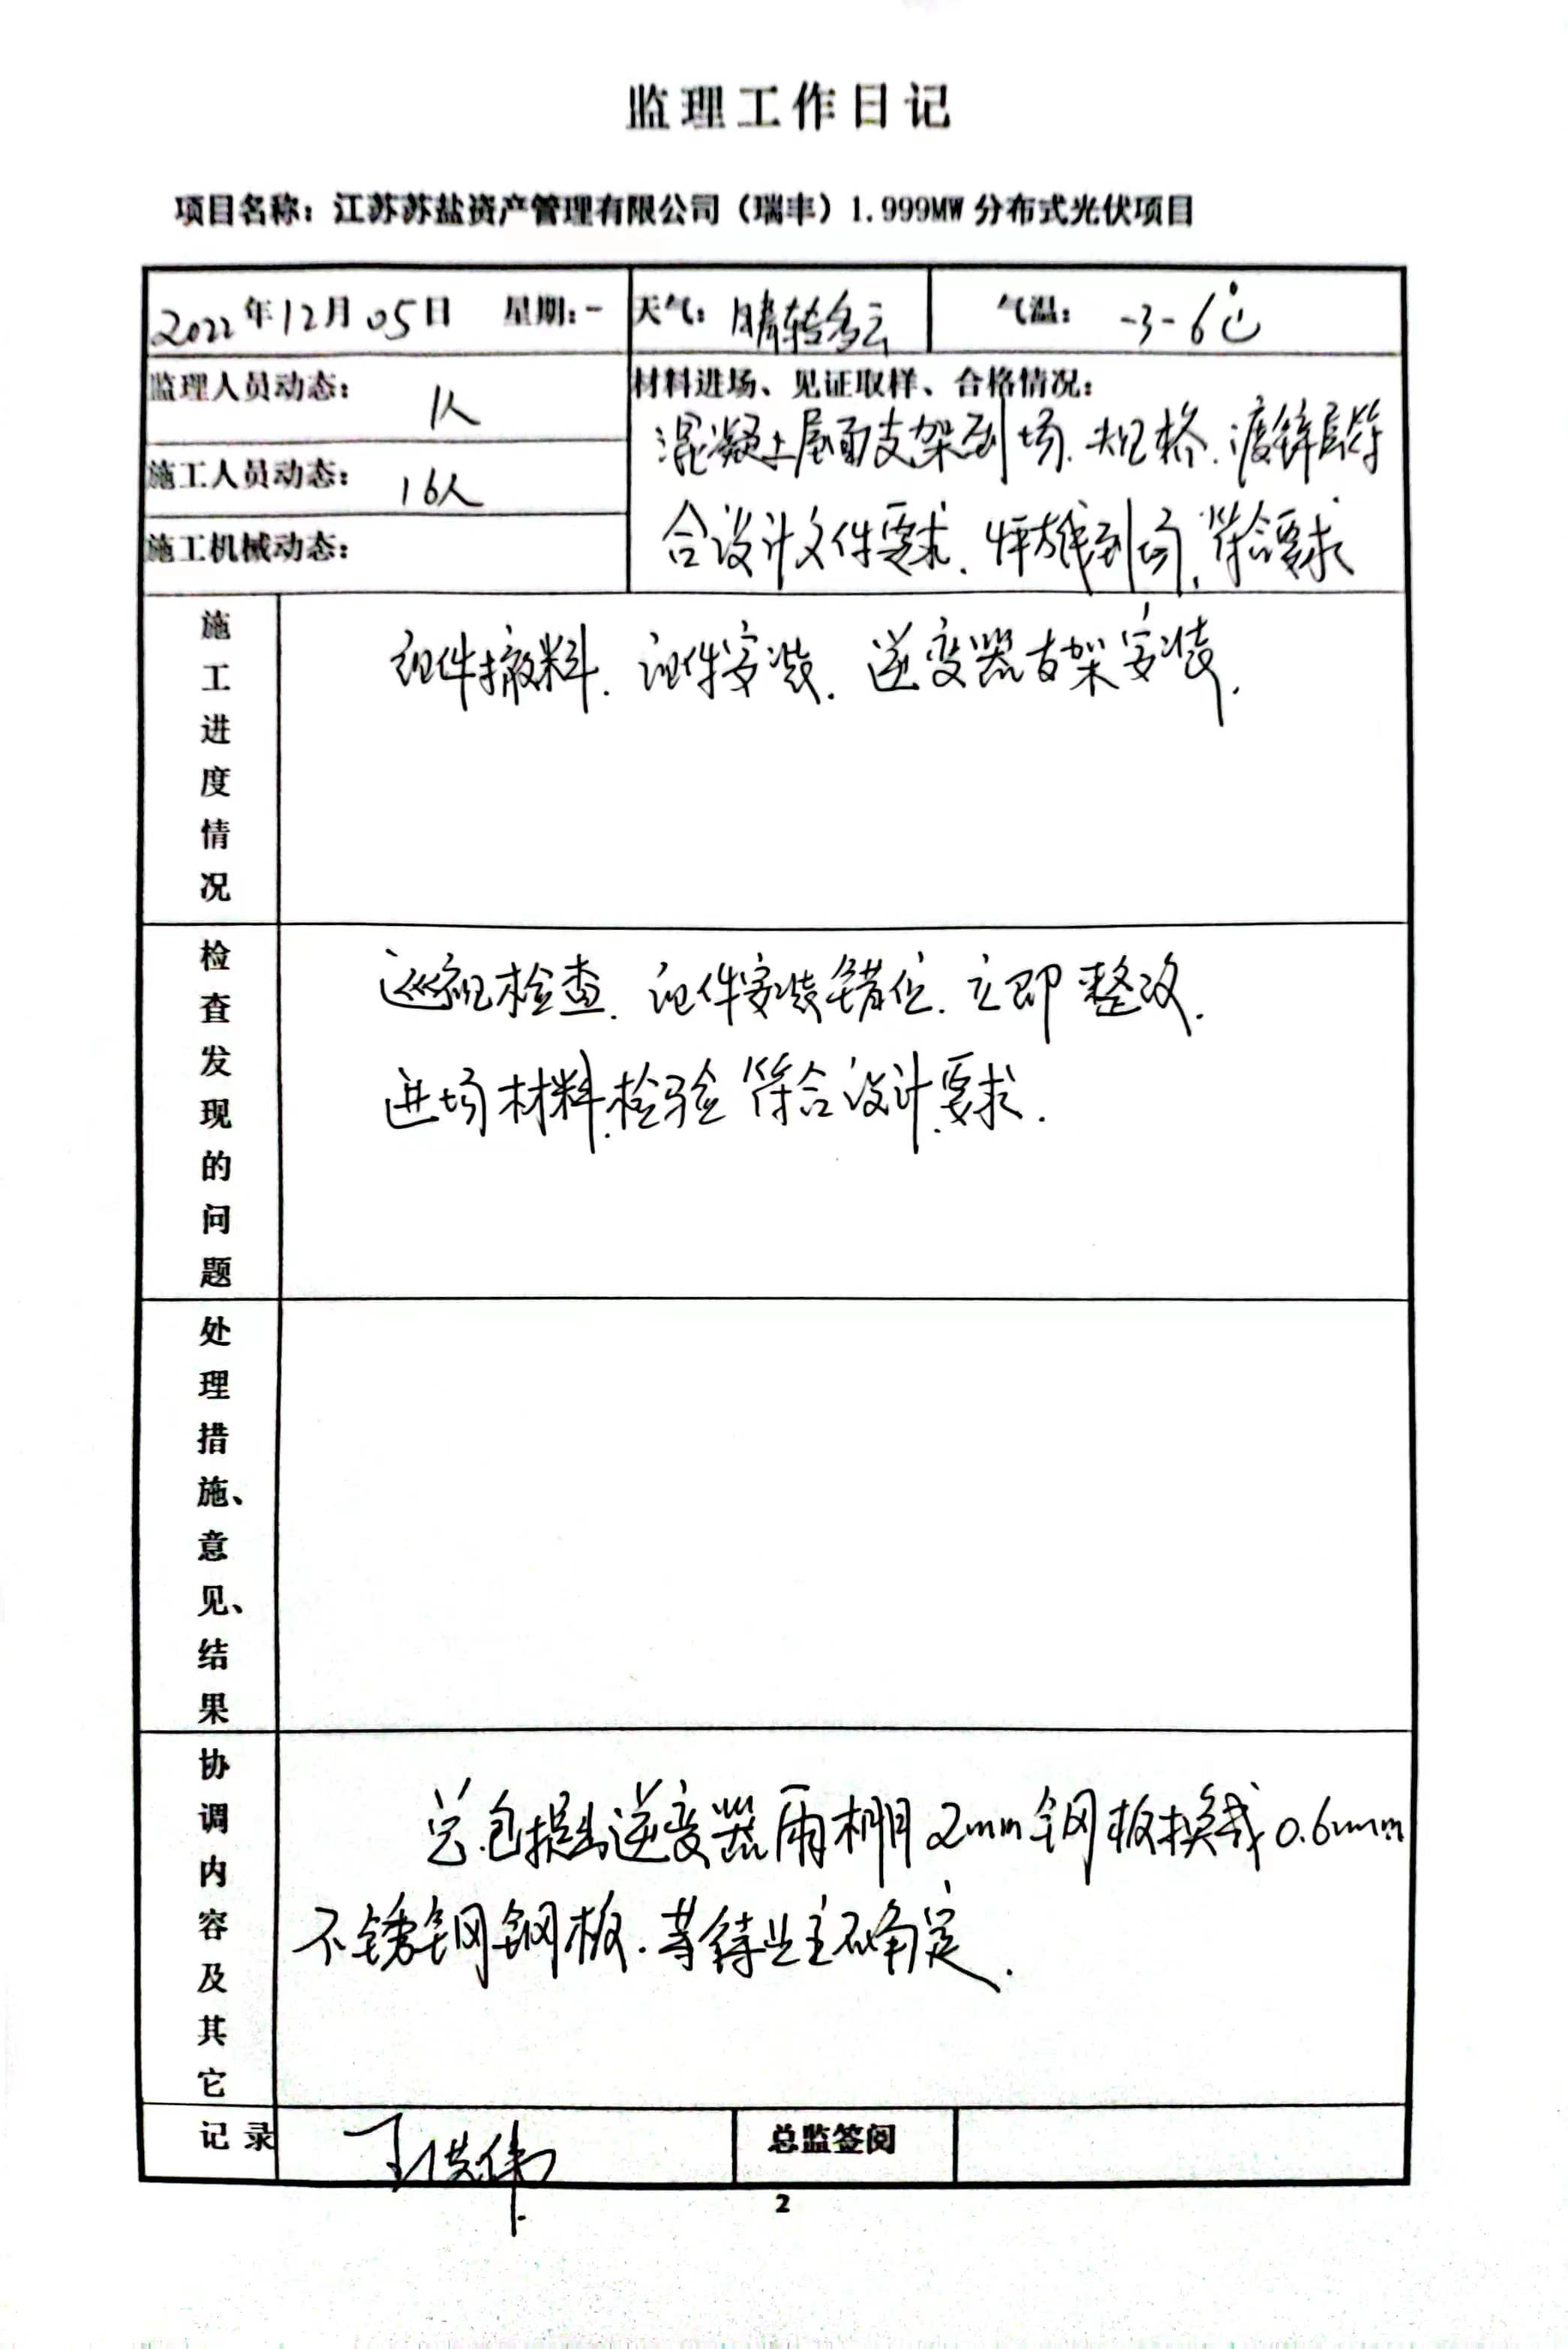 监理工作日记
项目名称：江苏苏盐资产管理有限公司（瑞丰）1.999MW 分布式光伏项目
2022年12月05日 星期：一 天气：晴转多云 气温： -3-6℃
监理人员动态： 1人
施工人员动态： 16人
施工机械动态：
材料进场、见证取样、合格情况：
混凝土屋面支架到场.规格.渡锌层符
合设计文件要求.到场,符合要求
施工进度情况
组件搬料.组件安装.逆变器支架安装.
检查发现的问题
巡视检查.组件安装错位.立即整改.
进场材料.检验符合设计要求.
处理措施、意见、结果
协调内容及其它
总包提出逆变器雨棚2mm钢板换成0.6mm
不锈钢钢板.等待业主确定.
记录 总监签阅
2